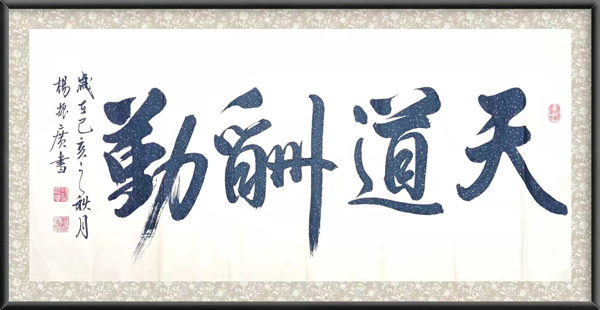 天道酬勤
歲在己亥之秋月
楊振廣書